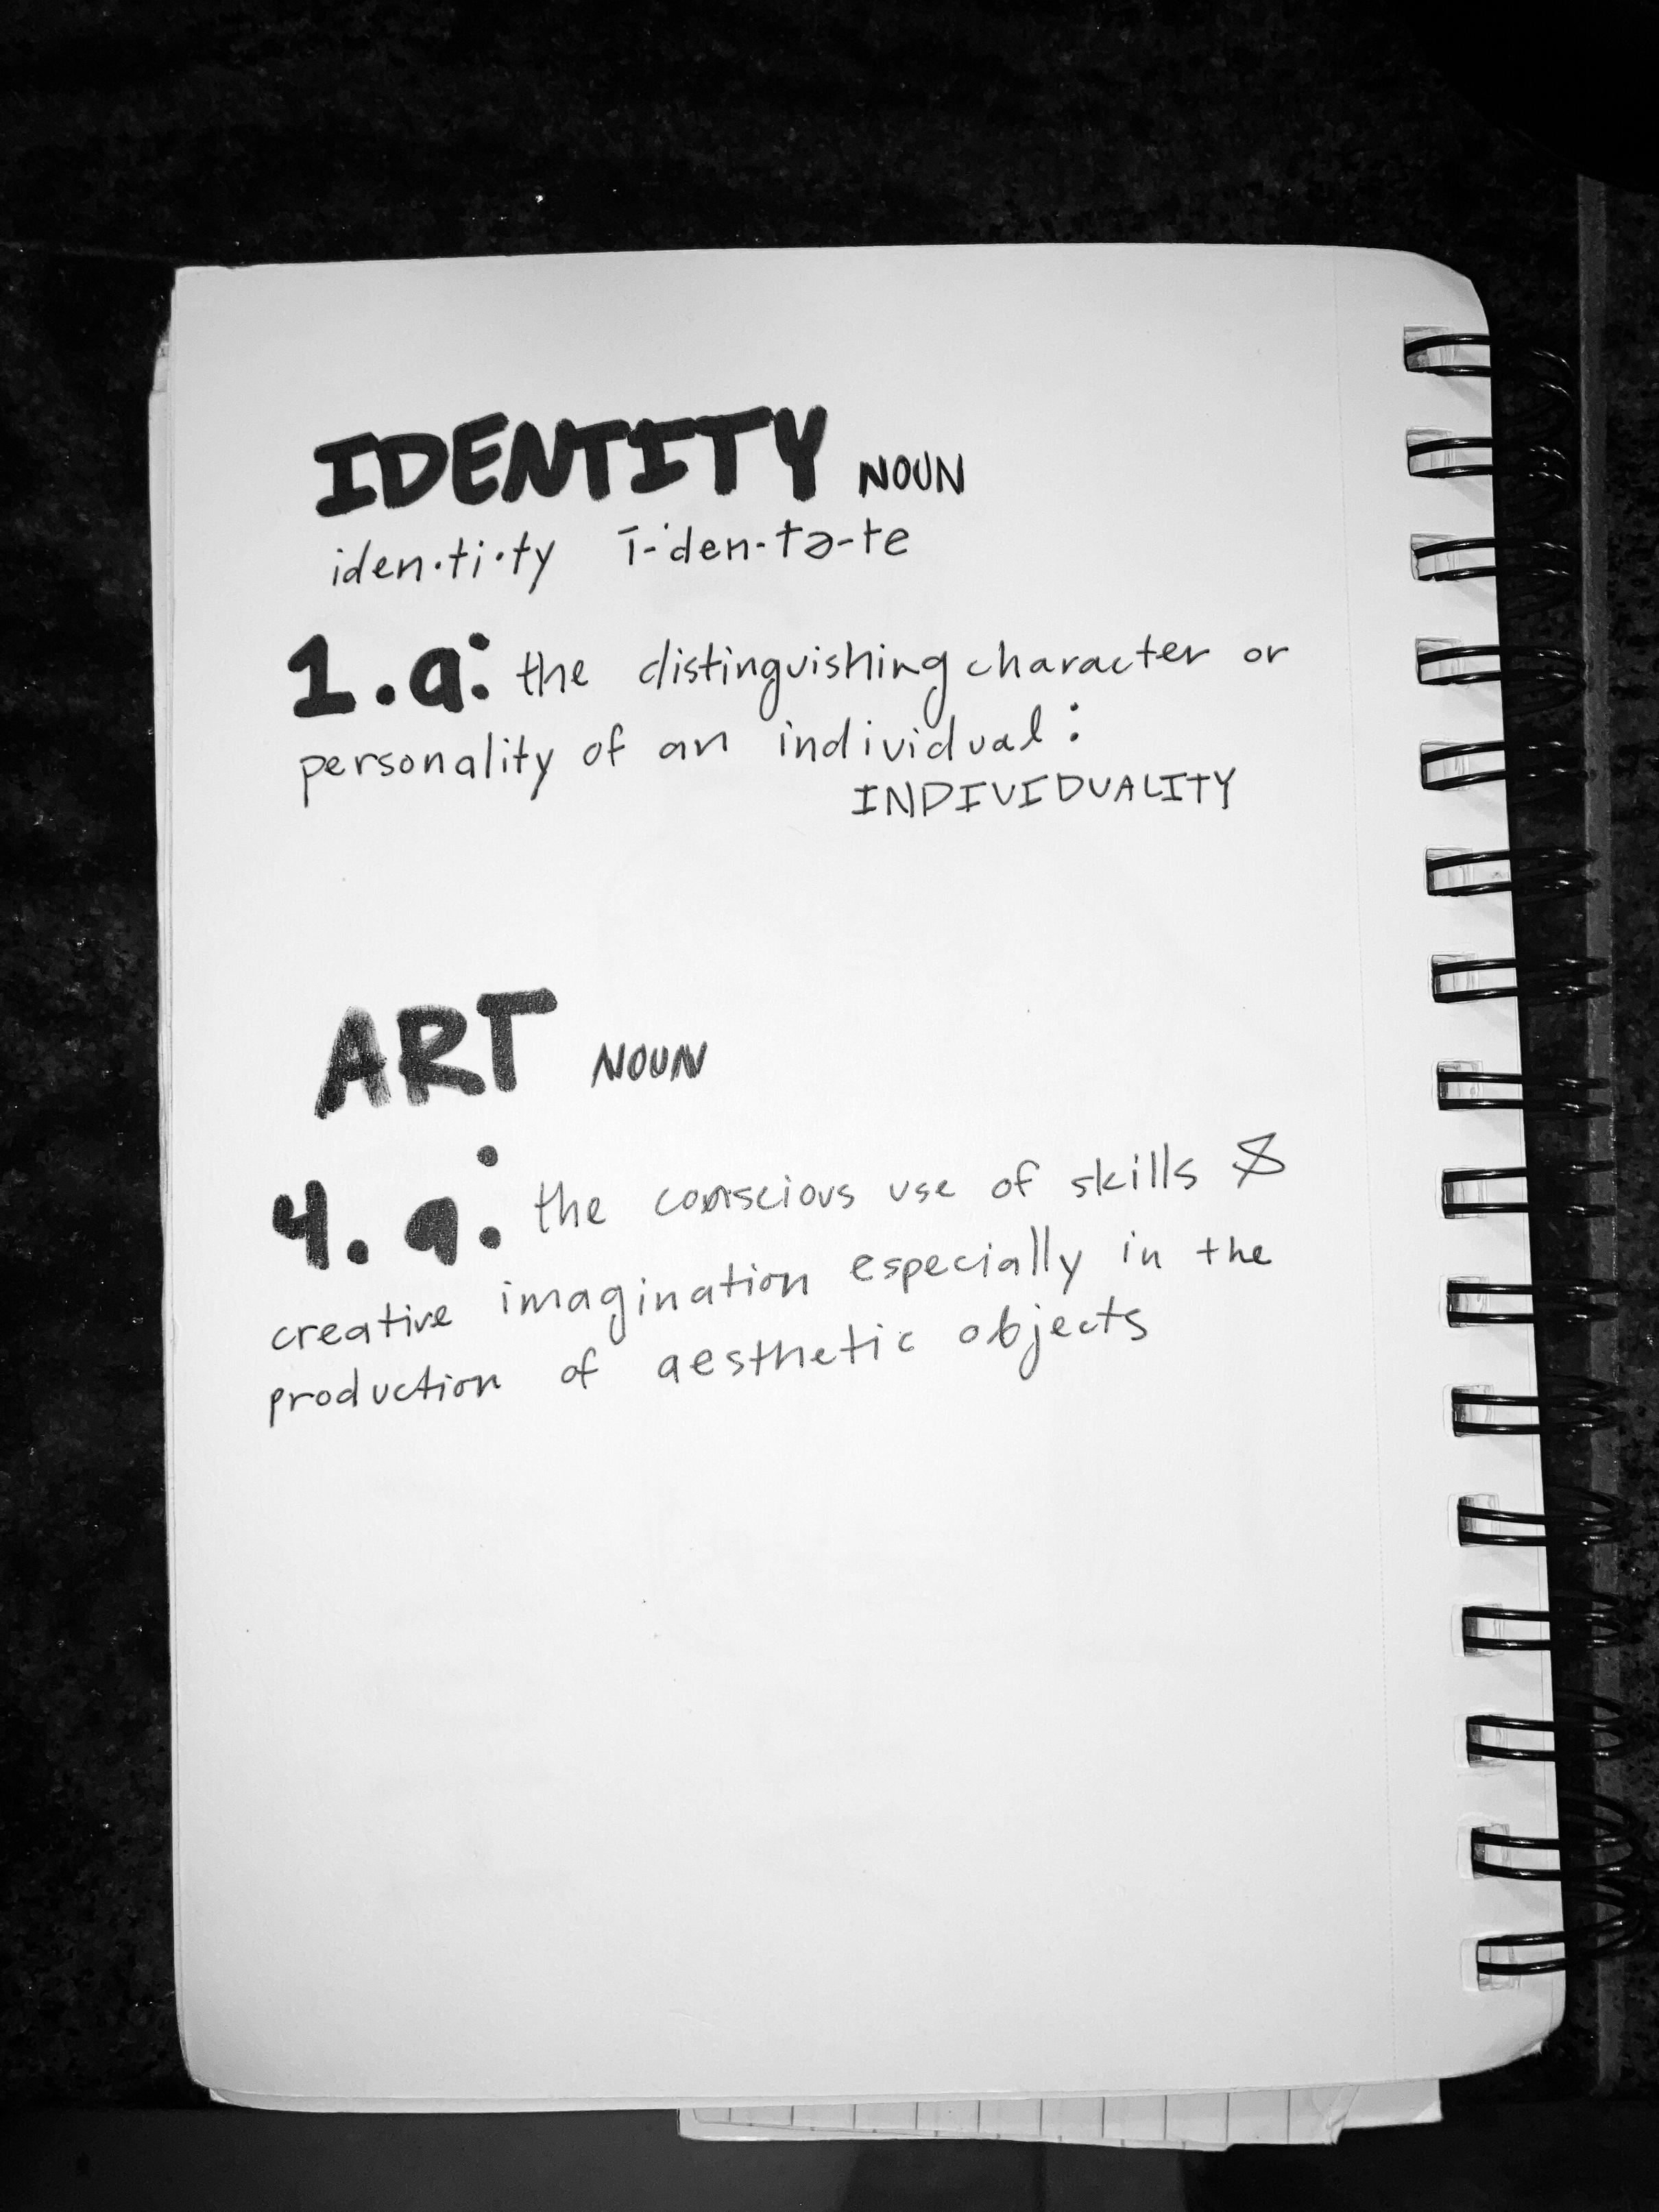 IDENTITY NOUN
iden·ti·ty ī-ˈden-tə-te
1.a: the distinguishing character or
personality of an individual:
INDIVIDUALITY
ART NOUN
4. a: the conscious use of skills &
creative imagination especially in the
production of aesthetic objects